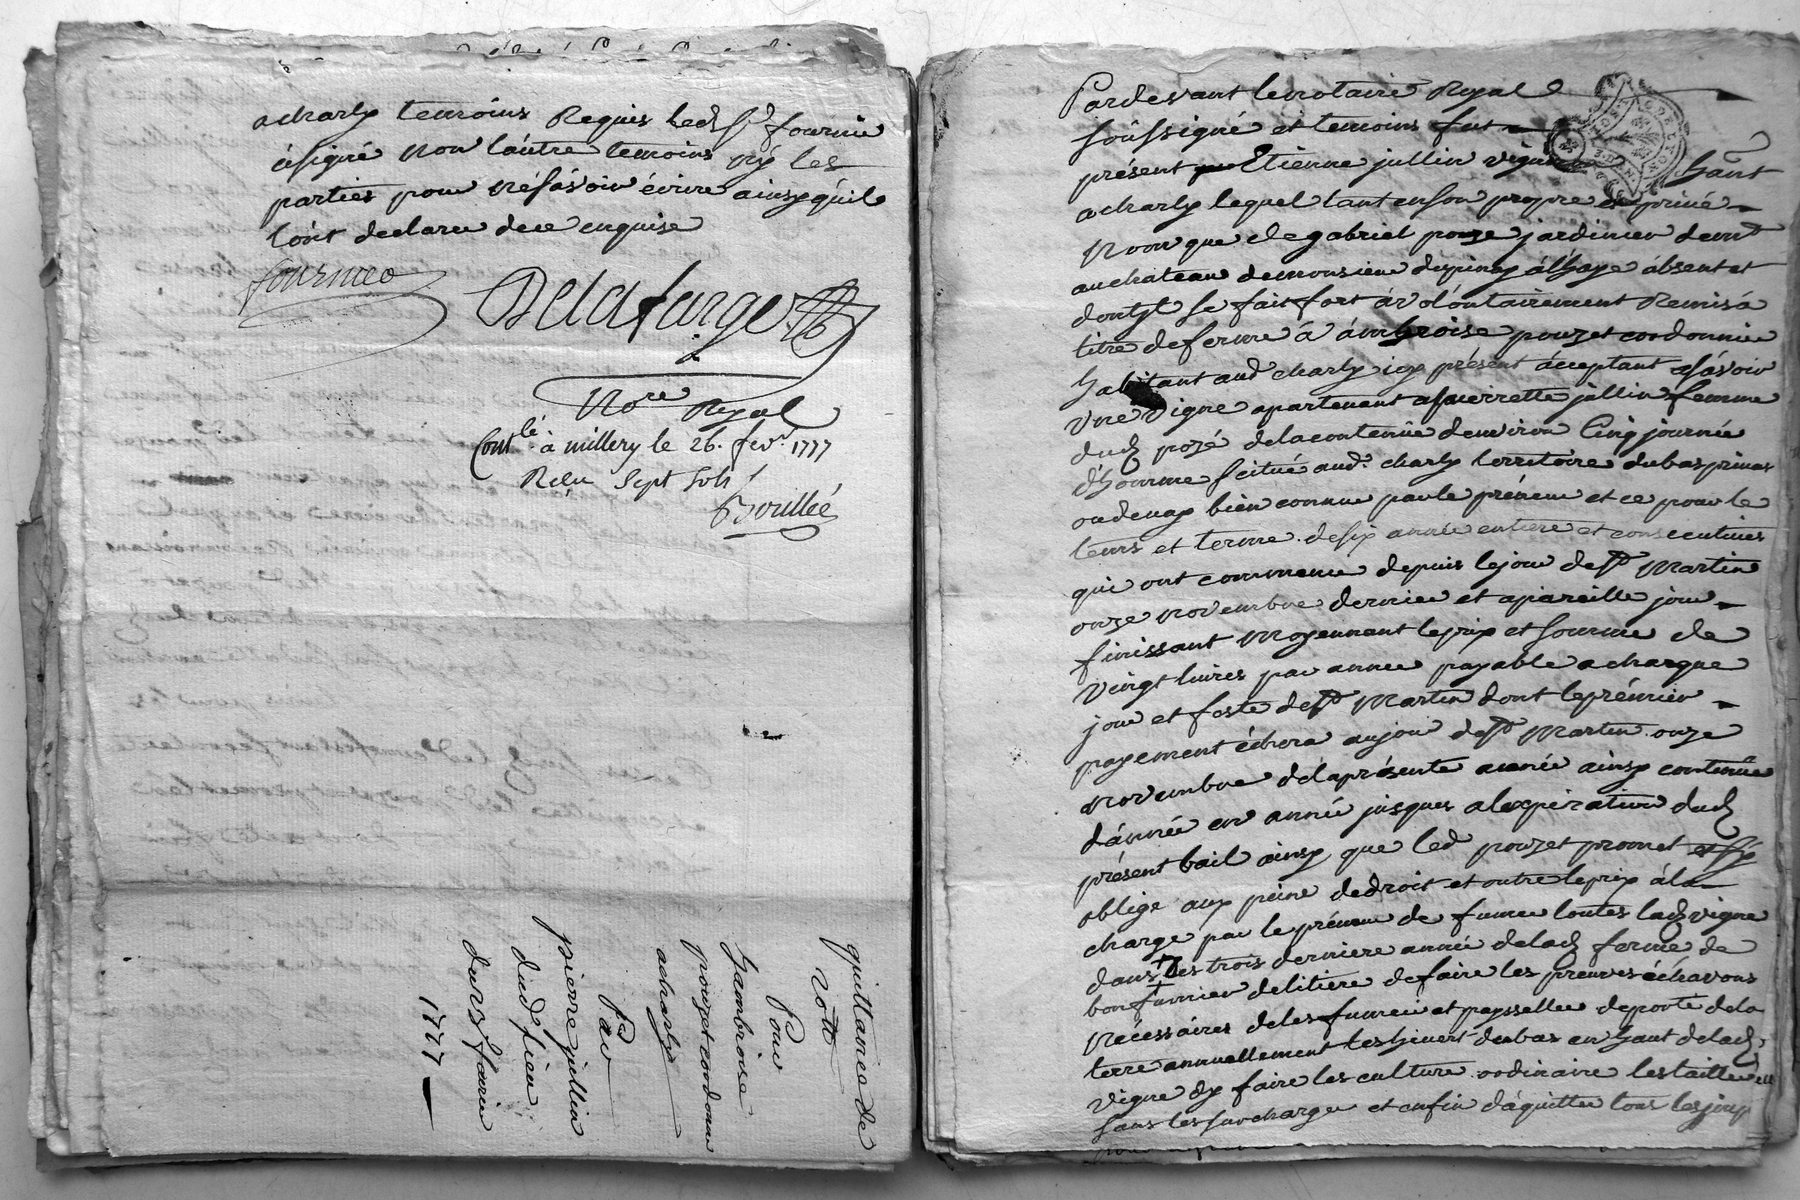 acharly temoins Requis led Sr fournie
a signé non l'autre temoins ny les
parties pour nésávoir écrire ainsy quil
lont declaree de ce enquise
fournieo
Delafarge
Nore Royal
Contlé à millery le 26. fevr 1777
Reçu Sept sols
Boullée
quittance de
20 lt
Pour
Sr ambroise
pouzet cordonnier
acharly
Par
pierre jullien
dud lieu
du 23 fevrier
1777
Pardevant le notaire Royal
soussigné et temoins fut
présent Etienne jullin vigneron habitant
a charly lequel tant en son propre et privé
Nom que de gabriel pouze jardinier demt
au chateau de monsieur despinay absent et
dontyl se fait fort á volontairement Remis á
titre de ferme á ámbroise pouzet cordonnier
habitant aud charly icy présent ácceptant ásávoir
une vigne apartenant a pierrette jullin femme
dud pozé de la contenue denviron Cinq journée
d'homme scitué aud charly territoire du bas
ou denay bien connue par le préneur et ce pour le
tems et terme de six année entiere et consecutives
qui ont commence depuis le jour de St Martin
onze novembre dernier et a pareille jour
finissant moyennant le prix et somme de
vingt livres par année payable a chaque
jour et feste de St Martin dont le prémier
payement échera au jour de St Martin onze
novembre de la présente année ainsy continué
d'année en année jusques a lexpiration dud
présent bail ainsy que led pouzet promet
oblige aux peine de droit et outre le prix á la
charge par le préneur de fumer toutes lad vigne
dans les trois derniere année de lad ferme de
bon fumier de litiere de faire les preuves échavons
nécessaires de les fumer et paysseller de porte de la
terre annuellement les hivert du bas en haut de lad
vigne dy faire les culture ordinaire les tailler
sans les surcharger et enfin dáquitter tous les